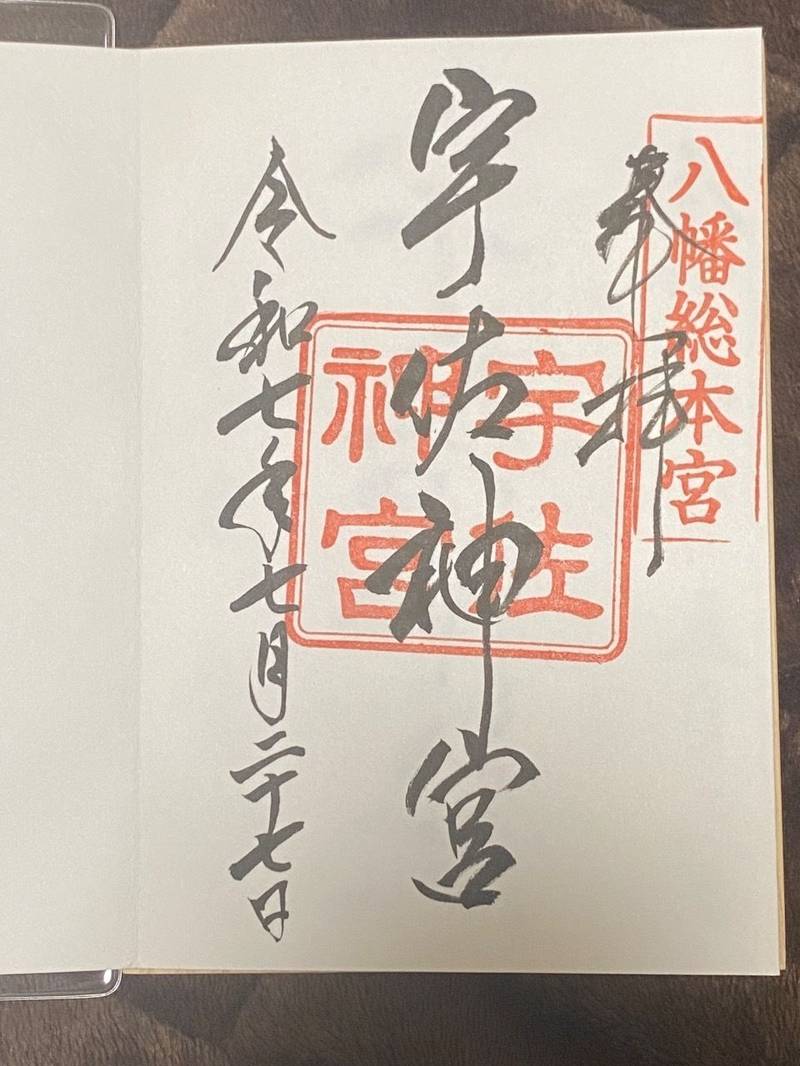 八幡総本宮
奉拝
宇佐神宮
宇佐
神宮
令和七年七月二十七日